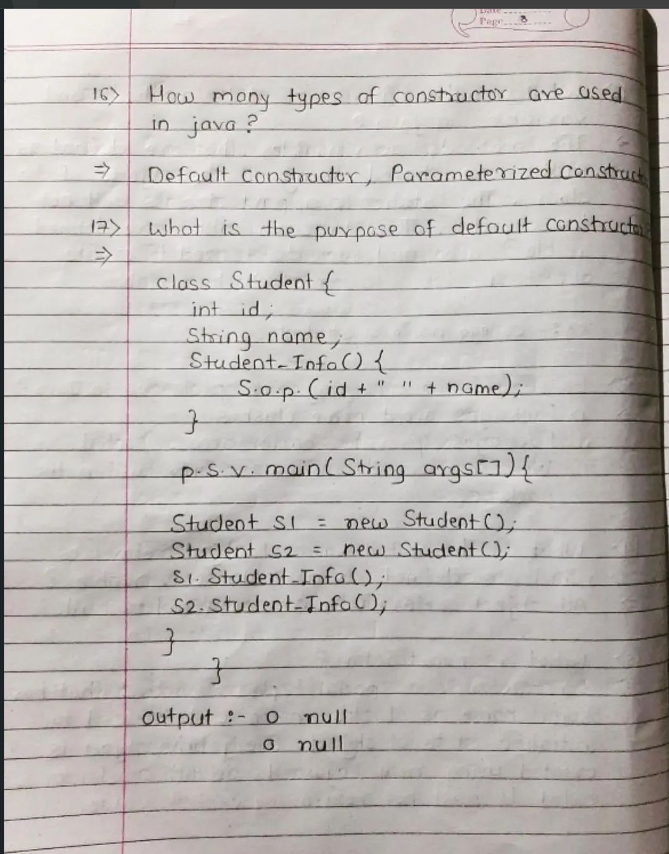 Date
Page 8
16> How many types of constructor are used
in java?
⇒ Default constructor, Parameterized construct
17> What is the purpose of default constructor
⇒
class Student {
int id;
String name;
Student_Info() {
S.o.p. (id + " " + name);
}
p.s.v. main( String args[]){
Student S1 = new Student();
Student S2 = new Student();
S1. Student_Info();
S2. Student_Info();
}
}
output :- 0 null
0 null